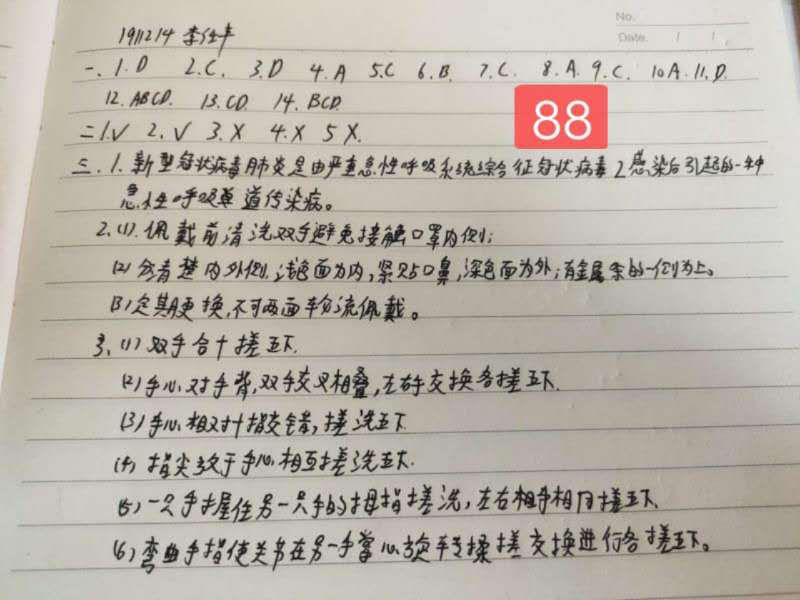 No.
Date.
1911214 李仕丰
一、1.D 2.C. 3.D 4.A 5.C 6.B. 7.C. 8.A. 9.C. 10A. 11.D.
12.ABCD. 13.CD. 14.BCD.
88
二1.√ 2.√ 3.X 4.X 5X.
三.1.新型冠状病毒肺炎是由严重急性呼吸系统综合征冠状病毒2感染后引起的一种
急性呼吸道传染病。
2.(1).佩戴前清洗双手避免接触口罩内侧;
(2)分清楚内外侧,浅色面为内,紧贴口鼻,深色面为外;有金属条的一侧为上。
(3)定期更换,不可两面轮流佩戴。
3.(1)双手合十搓五下.
(2)手心对手背,双手交叉相叠,左右手交换各搓五下.
(3)手心相对十指交错,搓洗五下.
(4)指尖放于手心相互搓洗五下.
(5)一只手握住另一只手的拇指搓洗,左右相同搓五下.
(6)弯曲手指使关节在另一手掌心旋转揉搓交换进行各搓五下。